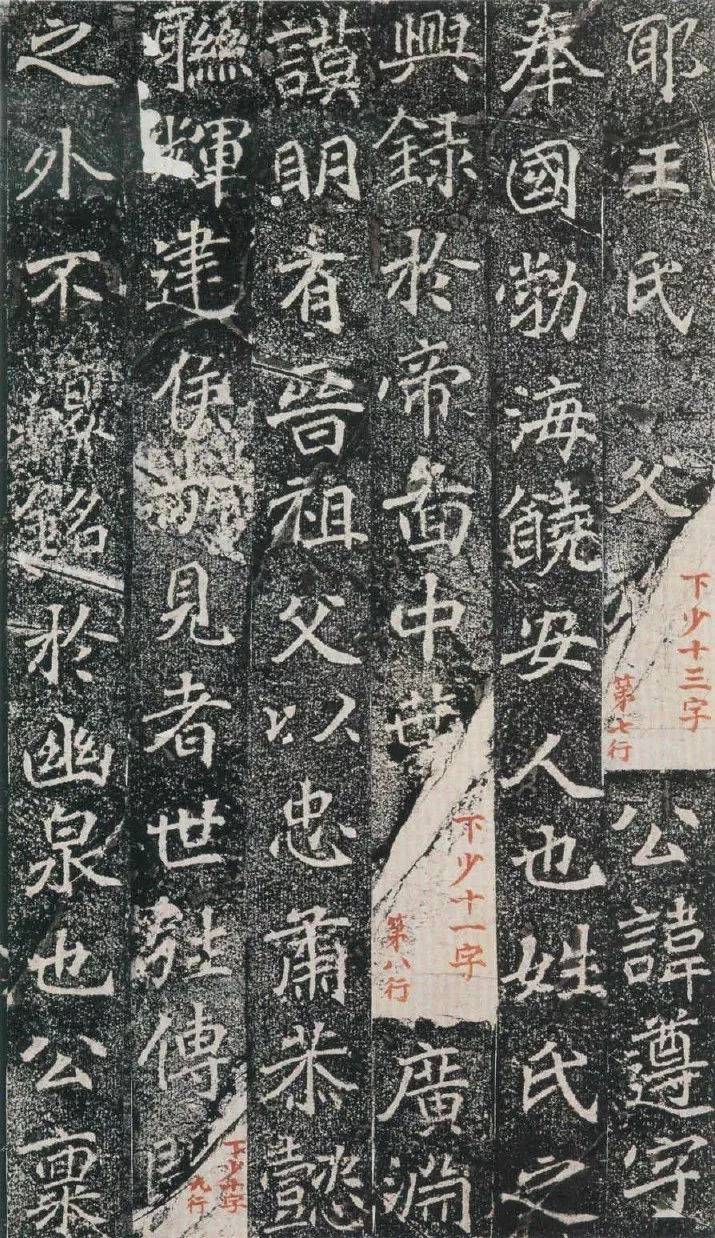 耶王氏 父
下少十三字
第七行
公諱遵字
奉國勃海饒安人也姓氏之
興録於帝啚中葉
下少十一字
第八行
廣淵
謨明有晉祖父以忠肅恭懿
聯輝建侯見者世傳
下少十字
九行
之外不復銘於幽泉也公稟